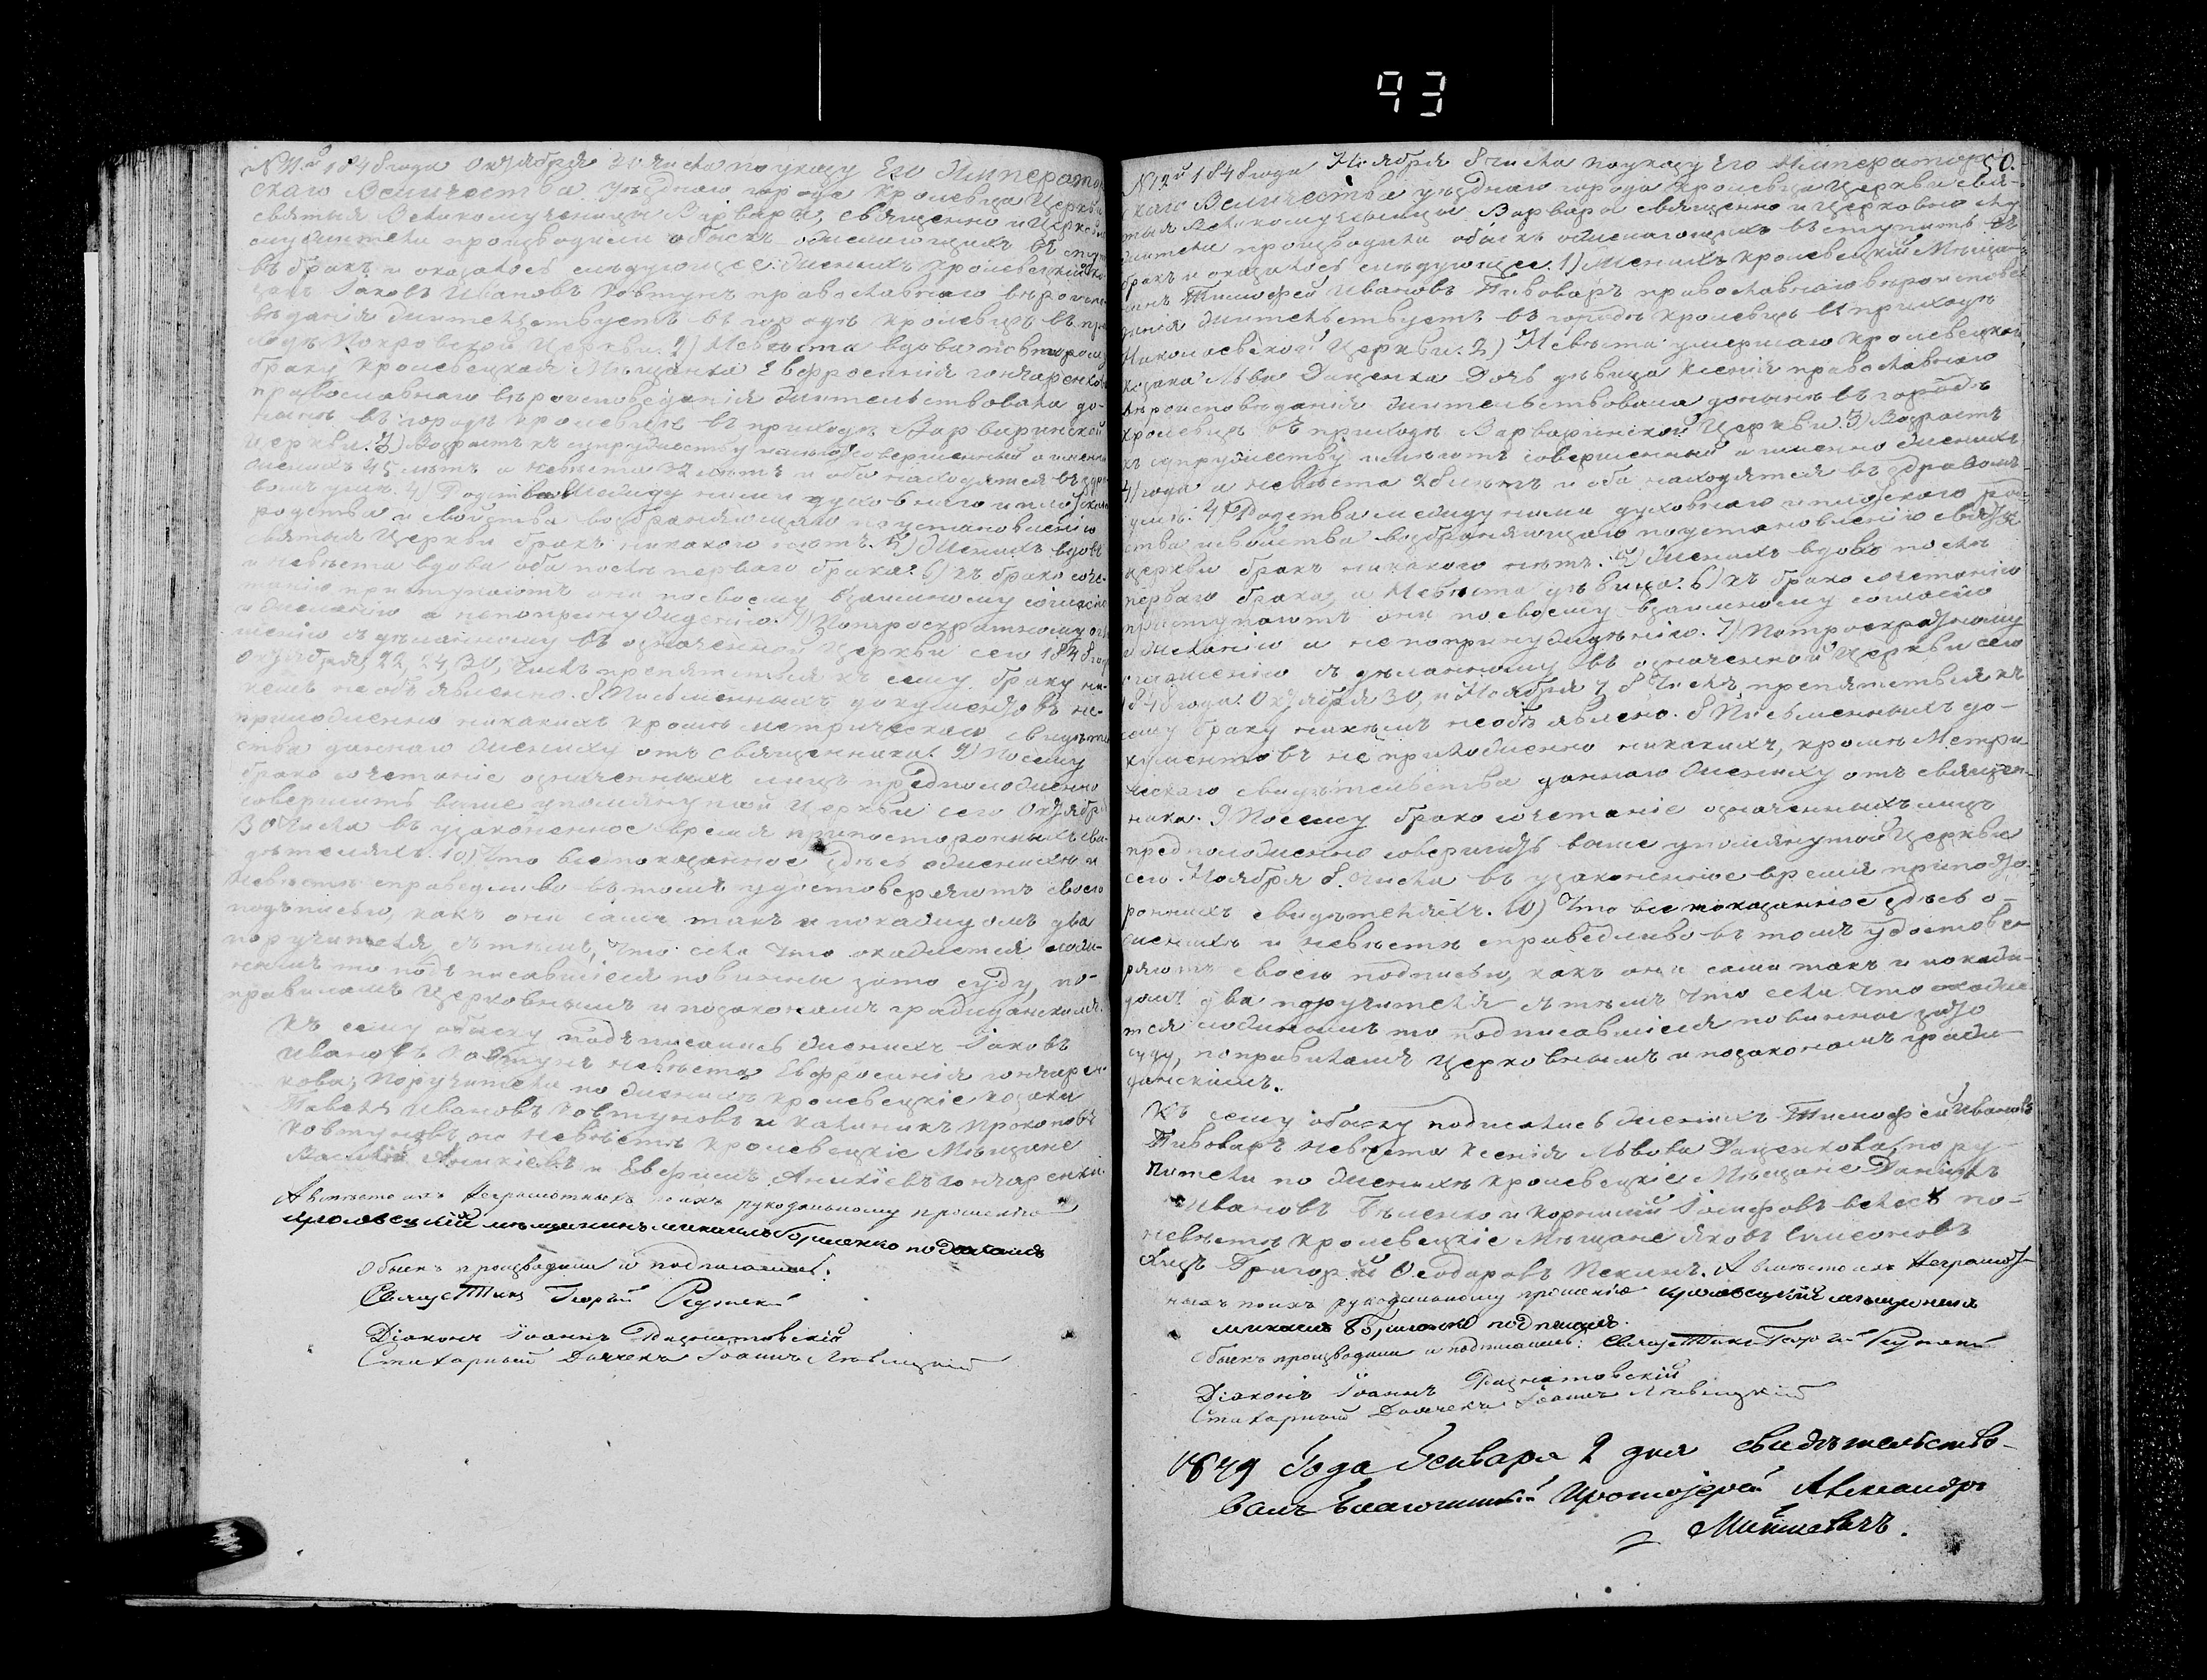 93
№ 11й 1848 года Октября 30 числа по указу Его Император
скаго Величества уѣзднаго города Кролевца Церкви
святыя Великомученицы Варвары, священно и Церковно
служители производили обыскъ о желающихъ вступить
въ бракъ и оказалось слѣдующее. Женихъ Кролевецкій
Іаковъ Ивановъ Ковтунъ православнаго вѣроиспо
вѣданія жительствуетъ въ городѣ Кролевцѣ въ при
ходѣ Покровской Церкви. 2) Невѣста вдова по второму
браку Кролевецкая Мѣщанка Евфросинія Гончаренкова
православнаго вѣроисповѣданія жительствовала до-
нынѣ въ городѣ Кролевцѣ въ приходѣ Варваринской
Церкви. 3) Возрастъ къ супружеству имѣютъ совершенный а именно
женихъ 45 лѣтъ а невѣста 32 лѣтъ и оба находятся въ здра
вомъ умѣ. 4) Родства между ними духовнаго и плотскаго
родства и свойства возбраняющаго по установленію
святыя Церкви бракъ никакого нѣтъ. 5) Женихъ вдовъ
и невѣста вдова оба послѣ перваго брака. 6) къ брако соче-
танію приступаютъ они по своему взаимному согласію
и желанію а не по принужденію. 7) По троекратному огла
шенію сдѣланному въ означенной Церкви сего 1848 года
Октября, 22, 24, 30, числъ препятствія къ сему браку ни-
кемъ не объявлено. 8 Письменныхъ документовъ не-
приложенно никакихъ кромѣ метрическаго свидѣтель
ства даннаго жениху отъ священника. 9) Посему
брако сочетаніе означенныхъ лицъ предположенно
совершить выше упомянутой Церкви сего Октября
30 числа въ узаконенное время при постороннихъ сви-
дѣтеляхъ. 10) Что все показанное здѣсь о женихѣ и
Невѣстѣ справедливо въ томъ удостоверяютъ своею
подписью, какъ они сами такъ и по каждомъ два
поручителя, съ тѣмъ, что если что окажется лож-
нымъ то подписавшіеся повинны зато суду, по-
правиламъ Церковнымъ и по законамъ гражданскимъ.
Къ сему обыску подписались женихъ Іаковъ
Ивановъ Ковтунъ невѣста Евфросинія Гончарен-
кова; Поручители по женихѣ Кролевецкіе козаки
Павелъ Ивановъ Ковтуновъ и Калиникъ Прокоповъ
Ковтуновъ, по невѣстѣ Кролевецкіе Мѣщане
Василій Аникіевъ и Евфимъ Аникіевъ Гончаренки.
А вмѣсто ихъ Неграмотныхъ по ихъ рукоданному прошенію
кролевецкій мѣщанинъ михаилъ борщенко подписалъ
Обыскъ производили и подписались:
Георгій
Діаконъ Іоаннъ
Стихарный Дьячекъ Іоаннъ
50.
№ 12й 1848 года Ноября 8 числа по указу Его Император
скаго Величества уѣзднаго города Кролевца Церкви свя-
тыя Великомученицы Варвары священно и Церковно слу
жители производили обыскъ о желающихъ вступить въ
бракъ и оказалось слѣдующее. 1) Женихъ Кролевецкій Мѣща-
нинъ Тимофей Ивановъ Пивоваръ православнаго вѣроисповѣ
данія жительствуетъ въ городѣ Кролевцѣ въ приходѣ
Николаевской Церкви. 2) Невѣста: умершаго Кролевецкаго
козака Льва Даценка Дочь дѣвица Ксенія православнаго
вѣроисповѣданія жительствовала донынѣ въ городѣ
Кролевцѣ въ приходѣ Варваринской Церкви. 3) Возрастъ
къ супружеству имѣютъ совершенный а именно женихъ
41 года а невѣста 28 лѣтъ и оба находятся въ здравомъ
умѣ. 4) Родства между ними духовнаго и плотскаго род
ства и свойства возбраняющаго по установленію святыя
церкви бракъ никакого нѣтъ. 5) Женихъ вдовъ послѣ
перваго брака, а Невѣста дѣвица. 6) къ брако сочетанію
приступаютъ они по своему взаимному согласію
и желанію а не по принужденію. 7) По троекратному
оглашенію сдѣланному въ означенной Церкви сего
1848 года. Октября 30, и Ноября 7, 8 числъ препятствія къ
сему браку никѣмъ необъявлено. 8 Письменныхъ до-
кументовъ не приложенно никакихъ, кромѣ Метри
ческаго свидѣтельства даннаго жениху отъ священ-
ника. 9 Посему брако сочетаніе означенныхъ лицъ
предположенно совершить выше упомянутой Церкви
сего Ноября 8. числа въ узаконенное время при посто-
роннихъ свидѣтеляхъ. 10) Что все показанное здѣсь о-
женихѣ и невѣстѣ справедливо въ томъ удостове-
ряютъ своею подписью, какъ они сами такъ и по каж-
домъ два поручителя съ тѣмъ что если что окаже
тся ложнымъ то подписавшіеся повинны зато
суду, по правиламъ Церковнымъ и по законамъ граж-
данскимъ.
Къ сему обыску подписались женихъ Тимофей Ивановъ
Пивоваръ невѣста Ксенія Львова Даценкова, пору-
чители по женихѣ Кролевецкіе Мѣщане Даніилъ
Ивановъ и Іосифовъ по-
невѣстѣ Кролевецкіе Мѣщане Яковъ Симеоновъ
Григорій Феодоровъ А вмѣсто ихъ Неграмот-
ныхъ по ихъ рукоданному прошенію кролевецкій мѣщанинъ
михаилъ борщенко подписалъ.
Обыскъ производили и подписались: Георгій
Діаконъ Іоаннъ
Стихарный Дьячекъ Іоаннъ
1849 Года Генваря 2 дня свидѣтельство-
валъ Благочинный Протоіерей Александръ